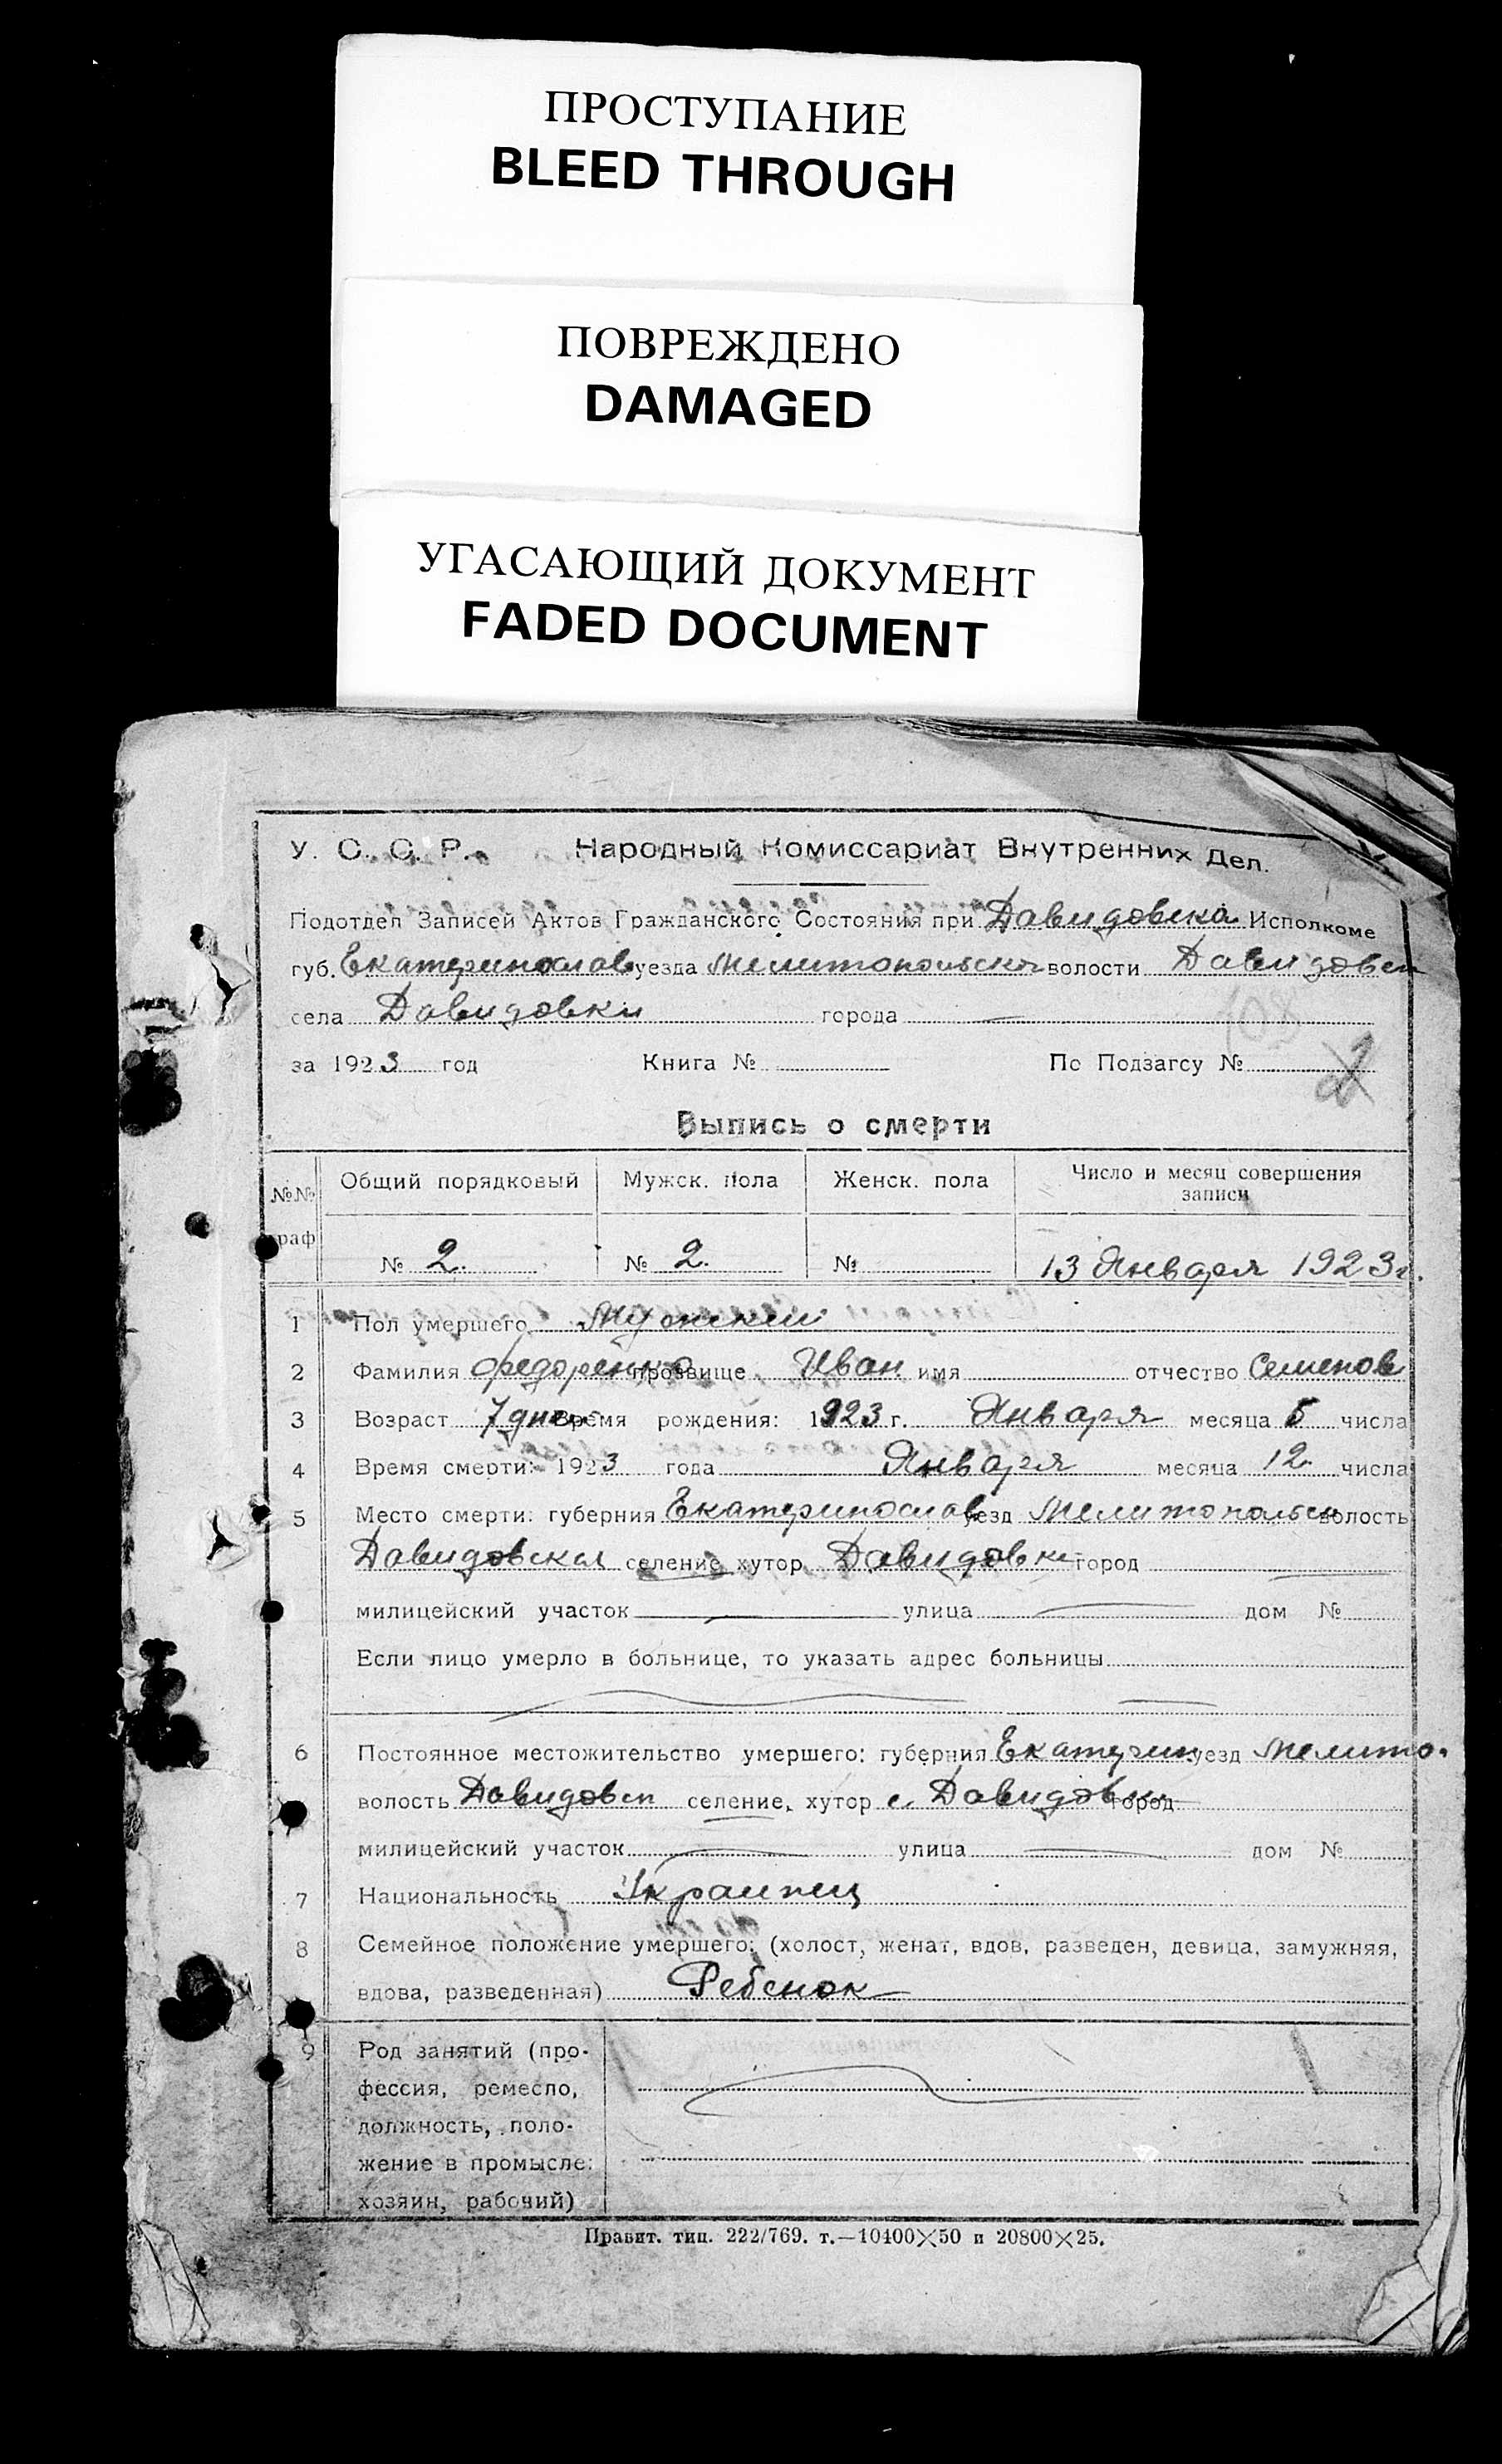 ПРОСТУПАНИЕ
BLEED THROUGH
ПОВРЕЖДЕНО
DAMAGED
УГАСАЮЩИЙ ДОКУМЕНТ
FADED DOCUMENT
У. С. С. Р. Народный Комиссариат Внутренних Дел.
Подотдел Записей Актов Гражданского Состояния при Давидовска Исполкоме
губ. Екатеринослав уезда Мелитопольска волости Давидовск
села Давидовки города
за 1923 год Книга № По Подзагсу №
Выпись о смерти
№№ граф Общий порядковый Мужск. пола Женск. пола Число и месяц совершения записи
№ 2. № 2. № 13 Января 1923 г.
1 Пол умершего Мужский
2 Фамилия Федоренко прозвище Иван имя отчество Семенов
3 Возраст 7 дней Время рождения: 1923 г. Января месяца 5 числа
4 Время смерти: 1923 года Января месяца 12 числа
5 Место смерти: губерния Екатеринослав уезд Мелитопольск волость
Давидовская селение хутор Давидовке город
милицейский участок улица дом №
Если лицо умерло в больнице, то указать адрес больницы
6 Постоянное местожительство умершего: губерния Екатерин уезд Мелито.
волость Давидовск селение, хутор с. Давидовки город
милицейский участок улица дом №
7 Национальность Украинец
8 Семейное положение умершего: (холост, женат, вдов, разведен, девица, замужняя,
вдова, разведенная) Ребенок
9 Род занятий (про-
фессия, ремесло,
должность, поло-
жение в промысле:
хозяин, рабочий)
Правит. тип. 222/769. т.—10400×50 и 20800×25.